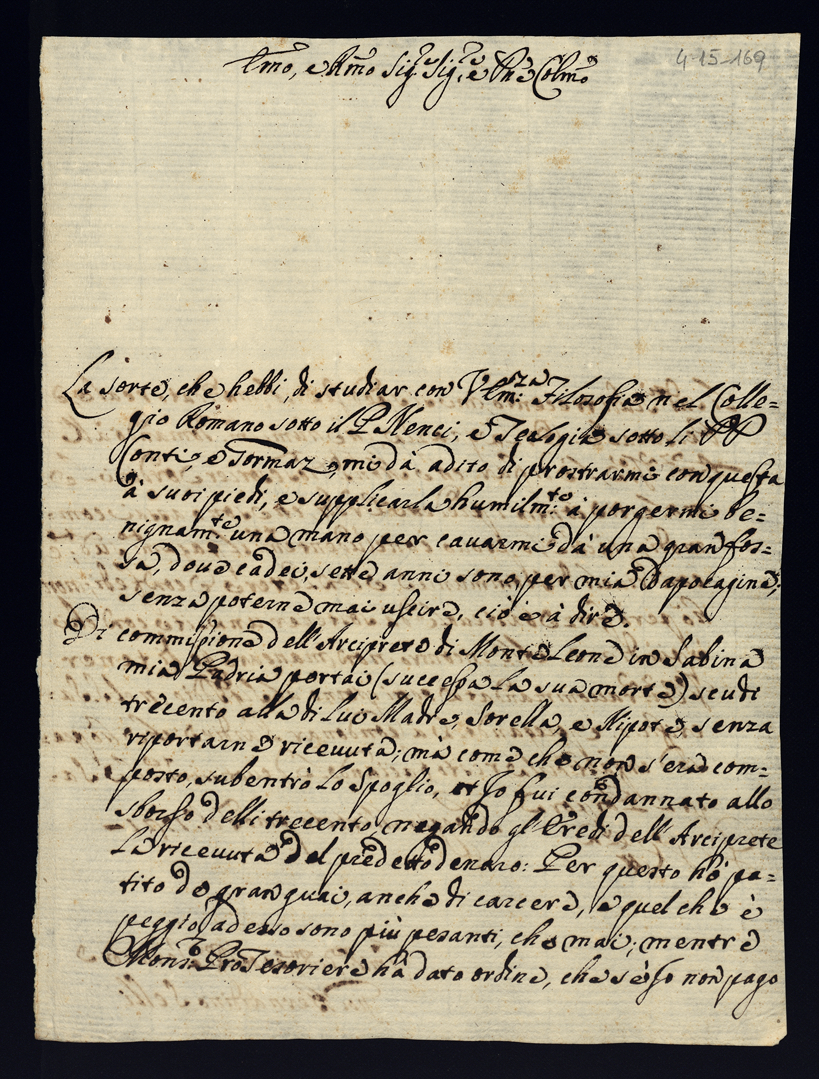 4-15-169
Emo, e Rmo Sig.re Sig.re, e Pne Colmo
La sorte, che hebbi, di studiar con V. Em:za Filosofia nel Colle=
gio Romano sotto il P. Nenci, e Teologia sotto li PP
Conti, e Tormaz, mi dà adito di prostrarmi con questa
à suoi piedi, e supplicarla humilm:te à porgermi be=
nignam:te una mano per cavarmi dà una gran fos=
sa, dove cadei, sette anni sono per mia dapocagine,
senza poterne mai uscire, ciò è à dire.
Di commissione dell'Arciprete di Monte Leone in Sabina
mia Padria portai (successa la sua morte) scudi
trecento alla di lui Madre, Sorella, e Nipote, senza
riportarne ricevuta; mà come che non s'era com=
posto, subentrò lo Spoglio, et Io fui condannato allo
sborso delli trecento, negando gl'Eredi dell'Arciprete
la ricevuta del predetto denaro: Per questo hò pa=
tito de gran guai, anche di carcere, e quel che è
peggio, adesso sono più pesanti, che mai; mentre
Mons:r ProTesoriere hà dato ordine, che s'è Io non pago